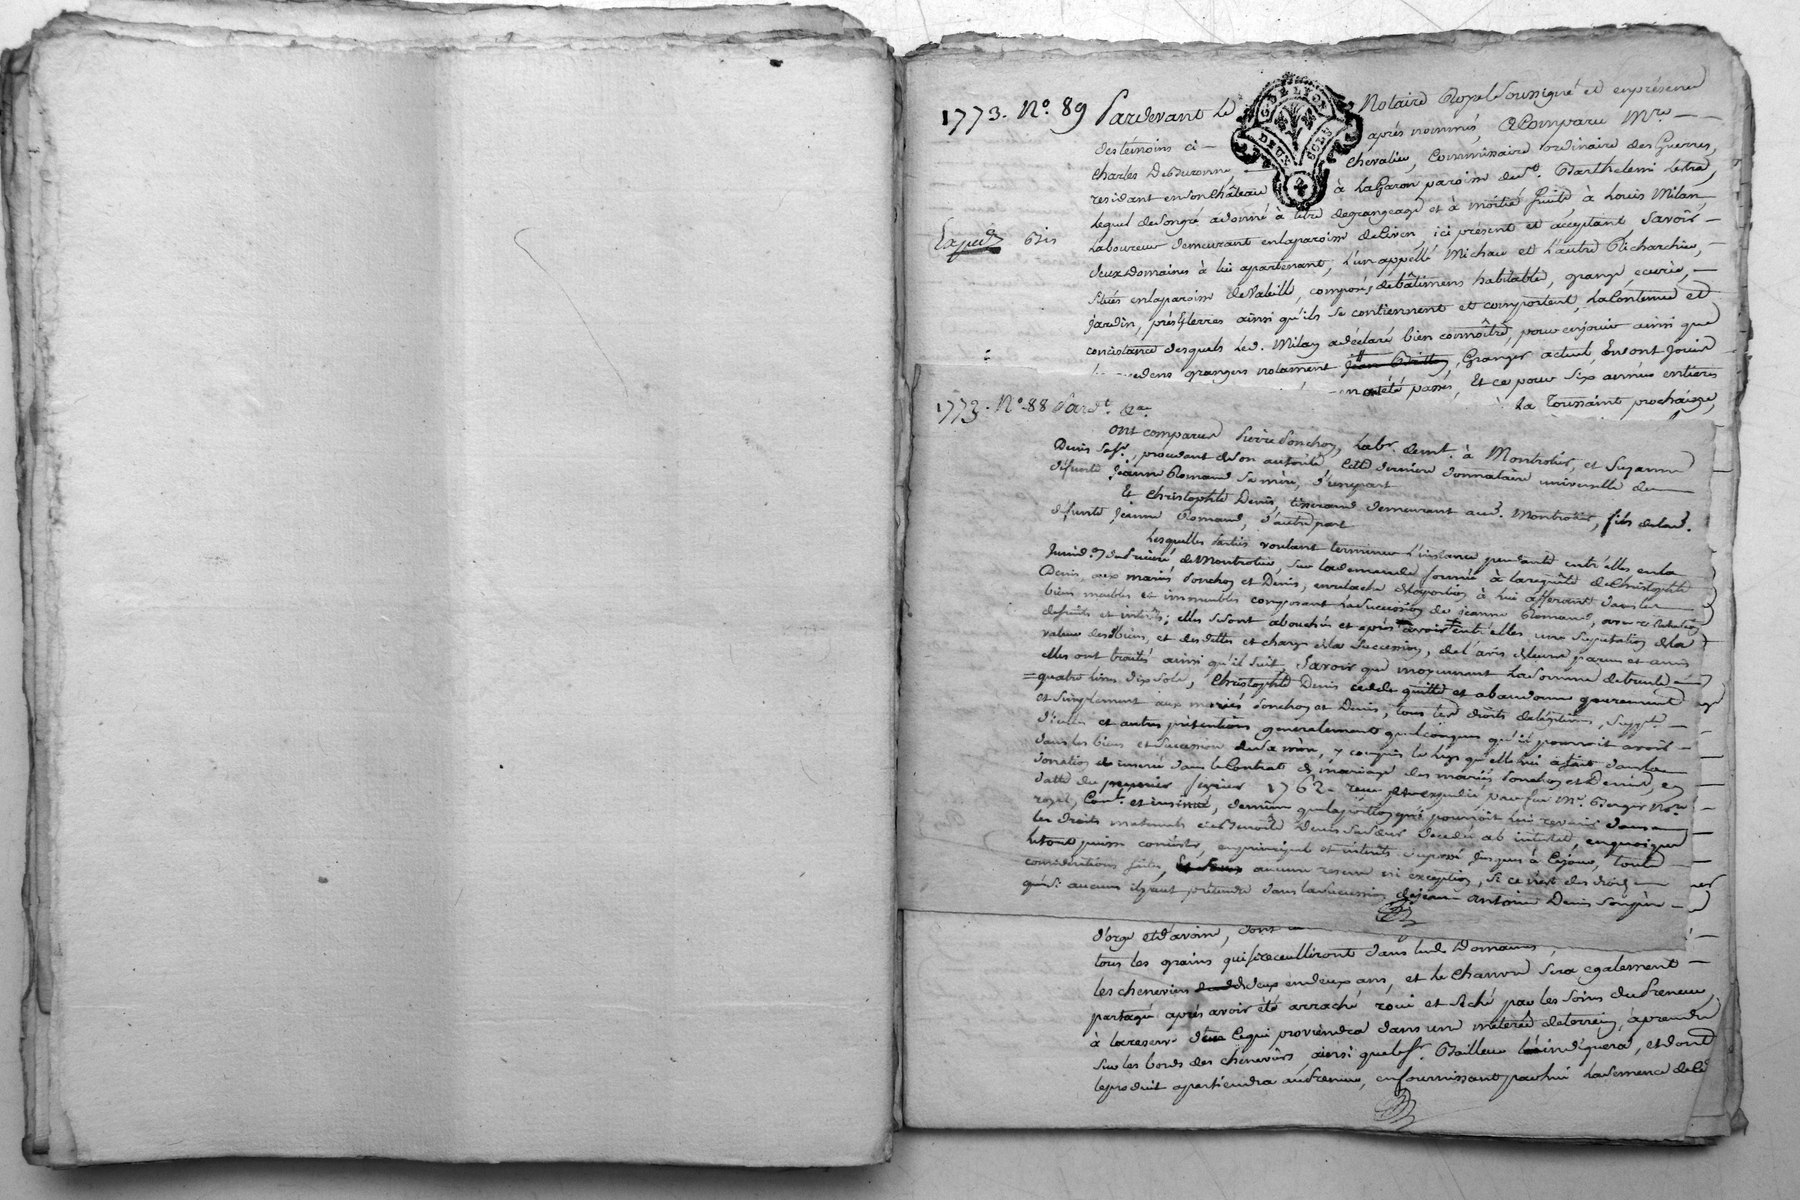 1773. N.º 89 Pardevant le Notaire Royal Soussigné et en présence
des témoins ci- après nommés, A Comparu Mre
G. DE LYON
DEUX SOLS
Charles Chevalier, Commissaire ordinaire des Guerres,
residant en son Château à LaGaron paroisse de St. Barthelemi Lestra,
Lequel de son gré a donné à titre de grangeage et à moitié fruits à Louis Milan,
Exped Bis
Laboureur demeurant en la paroisse de Civen, ici présent et acceptant Savoir
deux domaines à lui apartenant, l'un appellé Michau et l'autre Richarchiu,
situés en la paroisse de Valeille, composés de bâtimens habitable, grange, ecurie,
Jardin, prés, terres ainsi qu'ils se contiennent et comportent, la Contenue et
concistance desquels led. Milan a déclaré bien connoître, pour en jouir ainsi que
grangers notament Granger actuel, En ont Jouir
été passés, Et ce pour Six années entieres
la Toussaint prochaine,
1773. N.º 88 Pardt. &ca.
Ont comparus Pierre Ponchon, Labr. demt. à Montrotier, et Suzanne
Denis Sa fe., procédant de Son autorité, Cette derniere donnataire universelle de
défunte Jeanne Romand Sa mère, d'une part
Et Christophle Denis, tisserand demeurant aud. Montrotier, fils de lad.
défunte Jeanne Romand, d'autre part
Lesquelles Parties voulant terminer L'instance pendante entr'elles en la
Juridon. du Prieuré de Montrotier, Sur la demande formée à la requête de Christophle
Denis, aux mariés Ponchon et Denis, en relache de la portion à lui afferant dans les
biens meubles et immeubles composant la Succession de Jeanne Romand, avec restitution
de fruits et intérêts; elles se sont abouchés et après avoir entr'elles une Suputation de la
valeur des Biens, et des dettes et charges de la Succession, de l'avis de leurs parens et amis
elles ont traités ainsi qu'il suit, Savoir que moyennant La Somme de trente
quatre livres dix sols, Christophle Denis cede quitte et abandonne purement
et Simplement aux mariés Ponchon et Denis, tous les droits de légitime, Supplt.
d'icelle et autres prétentions generalement quelconques qu'il pourroit avoir
dans les biens et Succession de Sa mère, y compris le legs qu'elle lui a fait dans la
donation inserée dans le Contrat de mariage des mariés Ponchon et Denis, en
datte du premier fevrier 1762. reçu et expedié par feu Me. Berger Nore.
royal, Conlé. et insinué, de même que la portion qui pourroit lui revenir dans
les droits maternels de Benoîte Denis Sa Sœur decedée ab intestat, en quoi que
le tout puisse consister, en principal et intérêts Supposé jusques à Cejour, toute
considérations faites, aucune reserve ni exception, Si ce n'est des droits
que Si aucuns il peut prétendre dans la Succession de Jean Antoine Denis Son père
d'orge et d'avoine, dont
tous les grains qui Se receuilliront dans lesd. Domaines,
les chenevins deux en deux ans, et le Chanvre Sera egalement
partagé après avoir été arraché roui et Séché par les Soins du Preneur,
à la reserve de Ce qui proviendra dans une métérée de terrein, à prendre
Sur les bords des chenevirs ainsi que le Sr. Bailleur l'indiquera, et dont
le produit apartiendra au Preneur, en fournissant par lui La Semence de la